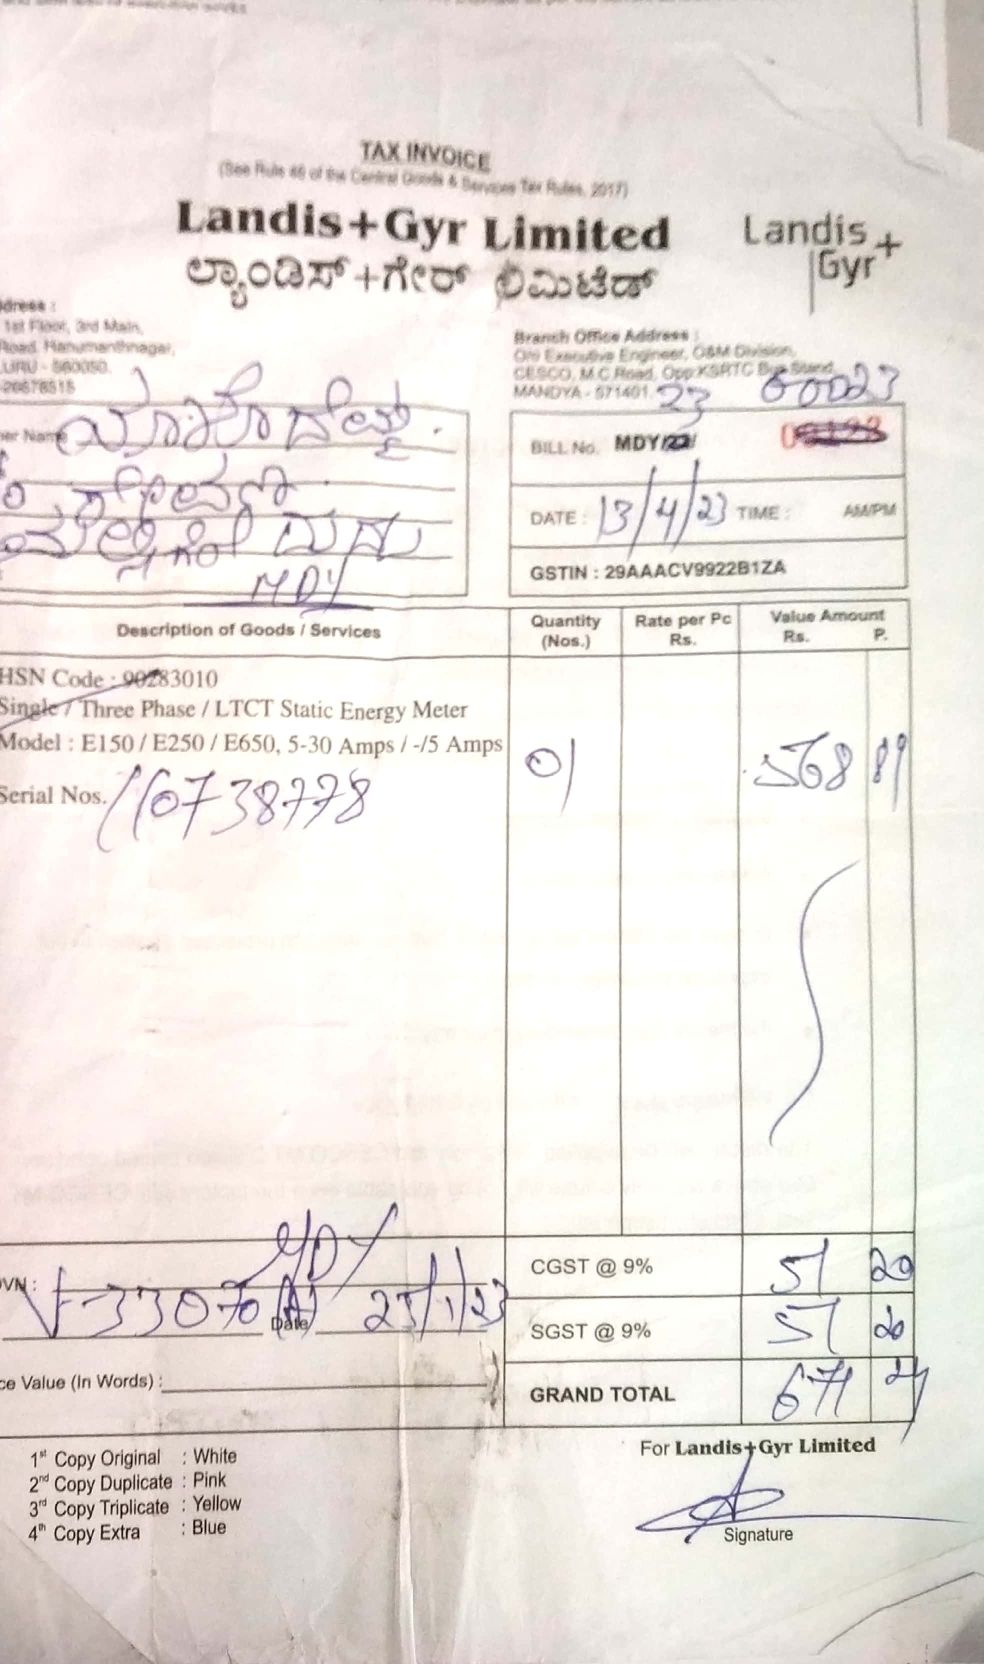 TAX INVOICE
(See Rule 46 of the Central Goods & Services Tax Rules, 2017)
Landis+Gyr Limited
ಲ್ಯಾಂಡಿಸ್+ಗೇರ್ ಲಿಮಿಟೆಡ್
Landis+
Gyr
ddress :
1st Floor, 3rd Main,
Road, Hanumanthnagar,
URU - 560050.
-26678515
Branch Office Address :
O/o Executive Engineer, O&M Division,
CESCO, M.C Road, Opp:KSRTC Bus Stand,
MANDYA - 571401.
23 00023
er Name
MDY
BILL No. MDY/22/
DATE : 13/4/23 TIME : AM/PM
GSTIN : 29AAACV9922B1ZA
Description of Goods / Services
Quantity (Nos.)
Rate per Pc Rs.
Value Amount Rs. P.
HSN Code : 90283010
Single / Three Phase / LTCT Static Energy Meter
Model : E150 / E250 / E650, 5-30 Amps / -/5 Amps
01 568 89
Serial Nos. 16738778
MDY
CGST @ 9% 51 20
VN : 33070 (A) Date 23/1/23
SGST @ 9% 51 20
ce Value (In Words) :
GRAND TOTAL 671 29
1st Copy Original : White
2nd Copy Duplicate : Pink
3rd Copy Triplicate : Yellow
4th Copy Extra : Blue
For Landis+Gyr Limited
Signature